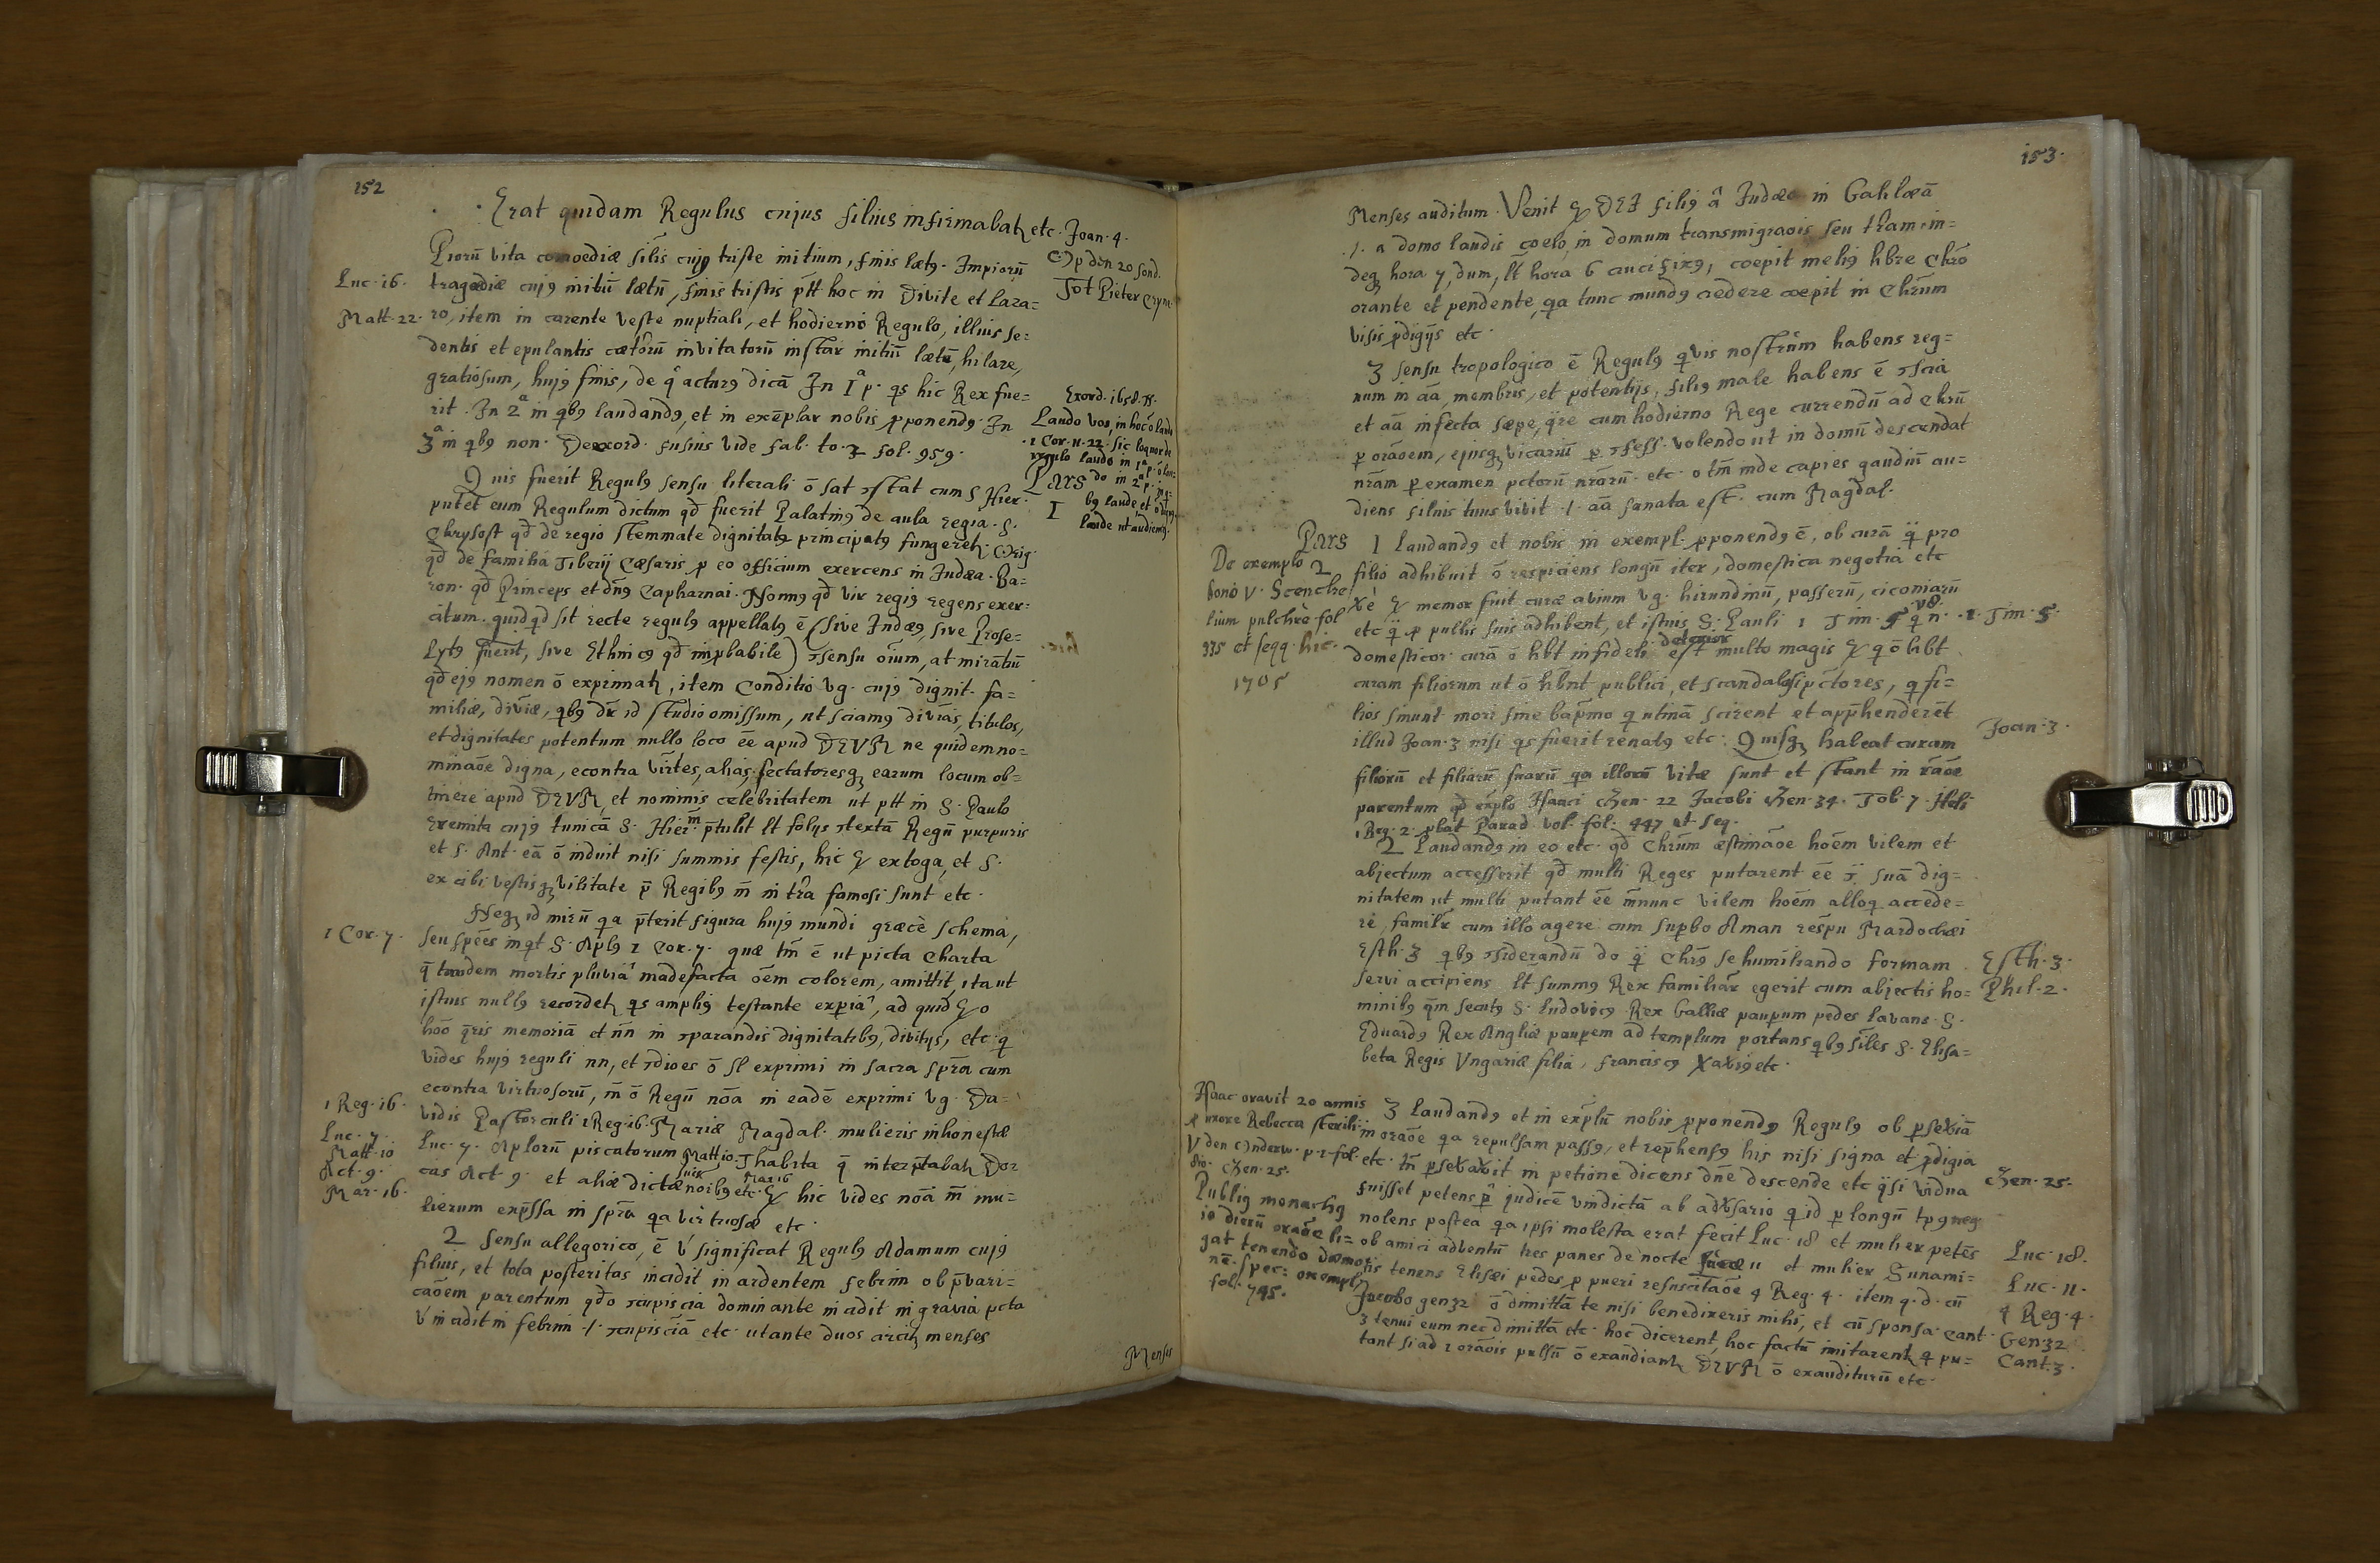 152
Erat quidam Regulus cujus filius infirmabatr etc. Joan. 4.
Op den 20 sond.
Tot Pieter
Piorū vita comoediæ silis cujq triste initium, finis lætq. Impiorū
Luc. 16.
tragœdiæ cujq initiū lætū, finis tristis ptt hoc in Divite et Laza=
Matt. 22.
ro, item in carente veste nuptiali, et hodierno Regulo, illius se=
dentis et epulantis cætorū invitatorū instar initiū lætū, hilare,
gratiosum, hujq finis, de q acturq dicā In 1ª p. qs hic Rex fue=
rit. In 2ª in qbq laudandq, et in exēplar nobis pponendq. In
3ª in qbq non. De exord. fusius vide fab. to. 3 fol. 959.
Exord. 1658.
Laudo vos, in hoc ō laudo
1 Cor. 11. 22. Sic loquor de
regulo laudo in 1ª p.
do in 2ª p.
bq laude et
laude ut audiemq.
Pars
1
Quis fuerit Regulq sensu literali ō sat ɔstat cum S Hier.
putet eum Regulum dictum qd fuerit Palatinq de aula regia. S.
Chrysost qd de regio stemmate dignitatq principatq fungeretr. Orig.
qd de familia Tiberij Cæsaris p eo officium exercens in Judæa. Ba=
ron. qd Princeps et dnq Capharnai. Nonnq qd vir regiq regens exer=
citum. quidqd sit recte regulq appellatq ē (sive Judæq, sive Prose=
hic.
lytq fuerit, sive Ethnicq qd inpbabile) ɔsensu oium, at mirātiū
qd ejq nomen ō exprimatr, item Conditio vg. cujq dignit. fa=
miliæ, diviæ, qbq dr id studio omissum, ut sciamq divias, titulos,
et dignitates potentum nullo loco ēe apud DEVM ne quidem no=
minaoe digna, econtra virtes, alias, sectatoresq earum locum ob=
tinere apud DEVM, et nominis celebritatem ut ptt in S. Paulo
Eremita cujq tunicā S. Hier. ptulit lt folijs ɔtextā Regū purpuris
et S. Ant. eā ō induit nisi summis festis, hic ex toga, et S.
ex cibi vestisq vilitate p Regibq in tra famosi sunt etc.
Neq id mirū qa pterit figura hujq mundi græcè schema,
1 Cor. 7.
seu spēes inqt S. Aplq 1 Cor. 7. quæ tm ē ut picta charta
q tandem mortis pluviâ madefacta ōem colorem, amittit, ita ut
istius nullq recordetr qs ampliq testante experiâ, ad quid o
hoō qris memoriā et nn in ɔparandis dignitatibq, divitijs, etc. q
vides hujq reguli nn, et ɔdioes ō sl exprimi in sacra spra cum
econtra virtuosorū, ō Regū nōa in eadē exprimi vg. Da=
1 Reg. 16.
vidis Pastorculi 1 Reg. 16. Mariæ Magdal. mulieris inhonestæ
Luc. 7.
Luc. 7. Aplorū piscatorum Matt 10. Thabita q interptabatr Dor
Matt. 10
Act. 9.
cas Act. 9. et aliæ dictæ noibq etc. hic vides nōā mu=
Mar. 16.
lierum expssa in spra qa virtuosæ etc.
2 Sensu allegorico, ē v significat Regulq Adamum cujq
filius, et tota posteritas incidit in ardentem febrim ob pvari=
caōem parentum qdo ɔcupiscia dominante incidit in gravia pcta
v incidit in febrim ./. ɔcupisciā etc. ut ante duos circitr menses
Menses
153.
Menses auditum. Venit DEI filiq â Judæa in Galilæā
./. a domo laudis coelo, in domum transmigraois seu tram. in=
deq hora 7, dum, lt hora 6 crucifixq, coepit meliq hbre Chro
orante et pendente, qa tunc mundq credere coepit in Chrum
visis pdigijs etc.
3 sensu tropologico ē Regulq qvis nostrûm habens reg=
num in aā, membris, et potentijs, filiq male habens ē ɔscia
et aā infecta sæpe, qre cum hodierno Rege currendū ad Chrū
p orāoem, ejusq vicariū p ɔfess. volendo ut in domū descendat
nrām p examen pctorū nrārū. etc. o tm inde capies gaudiū au=
diens filius tuus vivit ./. aā sanata est. cum Magdal.
Pars
2
1 Laudandq et nobis in exempl. pponendq ē, ob curā q pro
De exemplo
bono v. Scenche
lium pulchrè fol
935 et seqq. hic.
1705
filio adhibuit ō respiciens longū iter, domestica negotia etc
xè memor fuit curæ avium vg. hirundinū, passerū, ciconiarū
etc q p pullis suis adhibent, et istius S. Pauli 1 Tim. 5 v8. q n.
1. Tim. 5.
domesticor. curā ō hbt infideli deterior est multo magis q ō hbt
curam filiorum ut ō hbnt publici, et scandalosi pctores, q fi=
lios sinunt mori sine bapmo q utinā scirent et apphenderēt
Joan. 3.
illud Joan. 3 nisi qs fuerit renatq etc. Quisq habeat curam
filiorū et filiarū suarū qa illorū vitæ sunt et stant in rāoē
parentum qd explo Isaaci Gen. 22 Jacobi Gen. 34. Tob. 7. Heli
1 Reg. 2. pbat Parad. vol. fol. 447 et seq.
2 Laudandq in eo etc. qd Chrūm æstimāoe hoēm vilem et
abjectum accesserit qd multi Reges putarent ēe ɔ suā dig=
nitatem ut multi putant ēe nunc vilem hoēm alloq accede=
re, familr cum illo agere cum supbo Aman respu Mardochæi
Esth. 3.
Esth. 3 qbq ɔsiderandū do q Chrs se humiliando formam
servi accipiens lt summq Rex familiār egerit cum abjectis ho=
Phil. 2.
minibq qm secutq S. Ludovicq Rex Galliæ paupum pedes lavans. S.
Eduardq Rex Angliæ paupem ad templum portans qbq siles S. Elisa=
beta Regis Vngariæ filia, Franciscq Xaviq etc.
Isaac oravit 20 annis
p uxore Rebecca sterili
v den Onderw. p. 1. fol.
Gen. 25.
3 Laudandq et in explū nobis pponendq Regulq ob psevia
in oraōe qa repulsam passq, et rephensq his nisi signa et pdigia
etc. tn pseveravit in petione dicens dne descende etc qsi vidua
Gen. 25.
fuisset petens p judicē vindictā ab advsario q id p longū tpq neg
Publiq monachq
10 dierū oraōe li=
gat tenendo dæmonis
ne. spec. exemplr
fol. 795.
nolens postea qa ipsi molesta erat fecit Luc. 18 et mulier petēs
Luc. 18.
ob amici adventū tres panes de nocte Lucæ 11 et mulier Sunami=
Luc. 11.
tis tenens Elisæi pedes p pueri resuscitaōe 4 Reg. 4. item q. d. cū
4 Reg. 4.
Jacobo gen 32 ō dimittā te nisi benedixeris mihi, et cū sponsa cant.
Gen. 32
3 tenui eum nec dimittā etc. hoc dicerent, hoc factū imitarentr q pu=
Cant. 3.
tant si ad 1 orāois pulsū ō exaudiantr DEVM ō exauditurū etc.